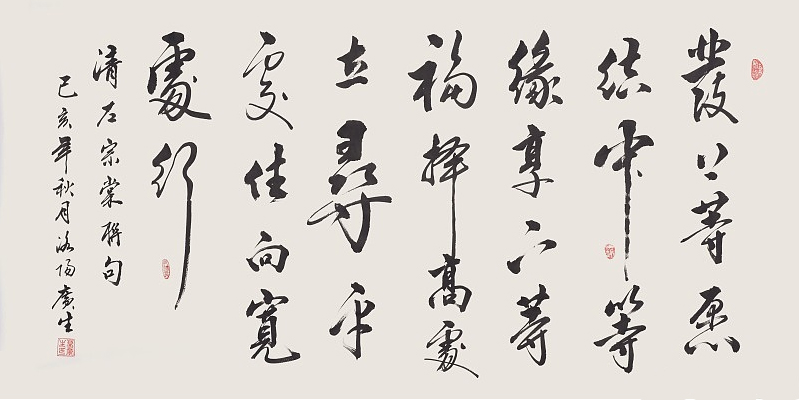 發上等愿
结中等
緣享下等
福择高處
立尋平
處住向寬
處行
清左宗棠聯句
己亥年秋月洛陽廣生